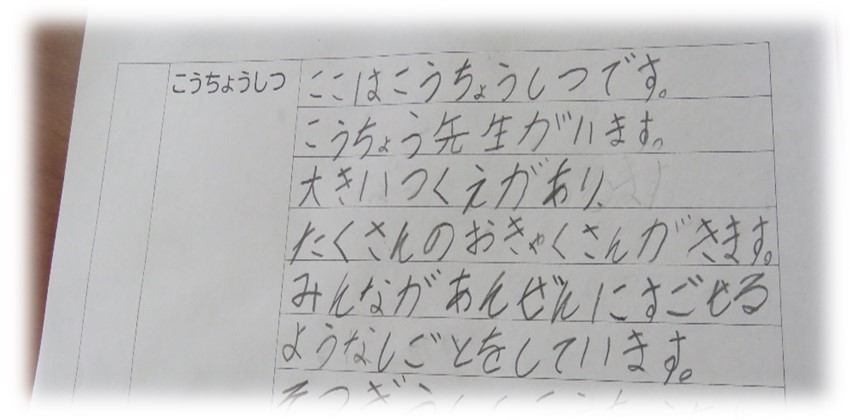 こうちょうしつ
ここはこうちょうしつです。
こうちょう先生がいます。
大きいつくえがあり、
たくさんのおきゃくさんがきます。
みんながあんぜんにすごせる
ようなしごとをしています。